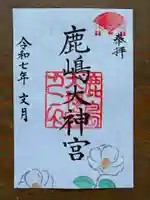 奉拝
鹿嶋大神宮
令和七年 文月